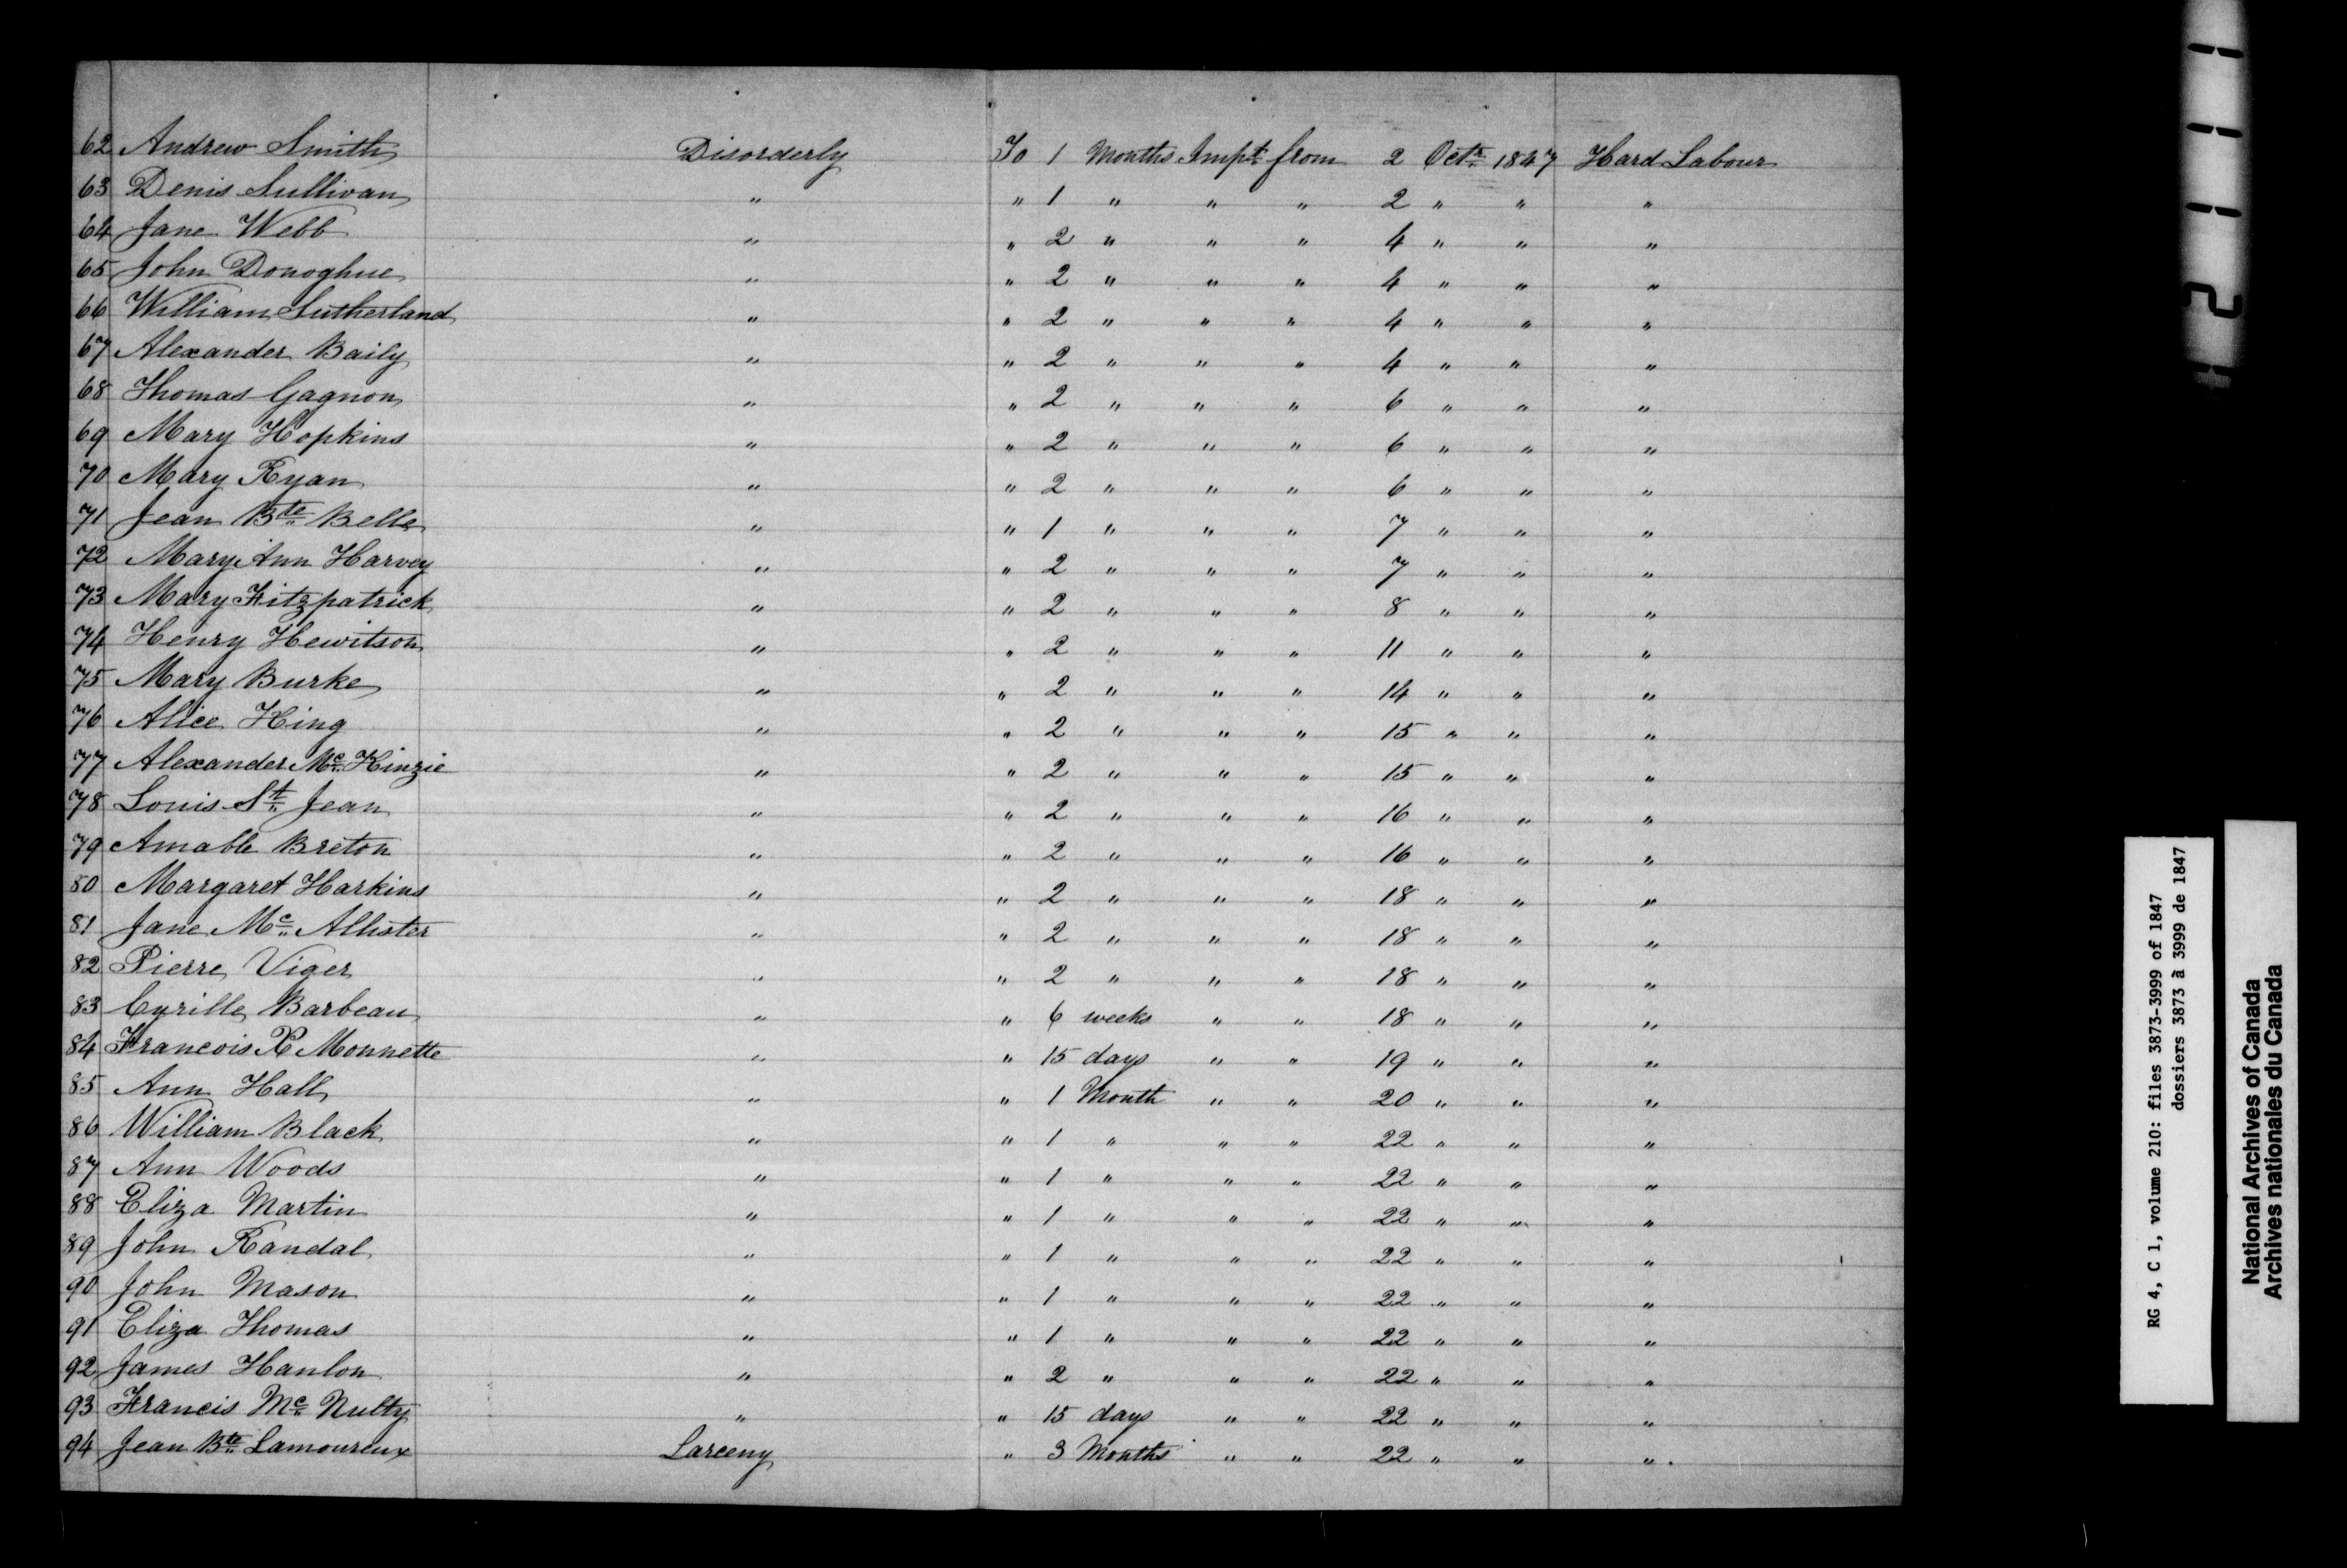 62 Andrew Smith Disorderly To 1 Months Impt. from 2 Octr. 1847 Hard Labour
63 Denis Sullivan " " 1 " " " 2 " " "
64 Jane Webb " " 2 " " " 4 " " "
65 John Donoghue " " 2 " " " 4 " " "
66 William Sutherland " " 2 " " " 4 " " "
67 Alexander Baily " " 2 " " " 4 " " "
68 Thomas Gagnon " " 2 " " " 6 " " "
69 Mary Hopkins " " 2 " " " 6 " " "
70 Mary Ryan " " 2 " " " 6 " " "
71 Jean Bte. Belle " " 1 " " " 7 " " "
72 Mary Ann Harvey " " 2 " " " 7 " " "
73 Mary Fitzpatrick " " 2 " " " 8 " " "
74 Henry Hewitson " " 2 " " " 11 " " "
75 Mary Burke " " 2 " " " 14 " " "
76 Alice King " " 2 " " " 15 " " "
77 Alexander Mc. Kinzie " " 2 " " " 15 " " "
78 Louis St. Jean " " 2 " " " 16 " " "
79 Amable Breton " " 2 " " " 16 " " "
80 Margaret Harkins " " 2 " " " 18 " " "
81 Jane Mc. Allister " " 2 " " " 18 " " "
82 Pierre Viger " " 2 " " " 18 " " "
83 Cyrille Barbeau " " 6 weeks " " 18 " " "
84 Francois X Monnette " " 15 days " " 19 " " "
85 Ann Hall " " 1 Month " " 20 " " "
86 William Black " " 1 " " " 22 " " "
87 Ann Woods " " 1 " " " 22 " " "
88 Eliza Martin " " 1 " " " 22 " " "
89 John Randal " " 1 " " " 22 " " "
90 John Mason " " 1 " " " 22 " " "
91 Eliza Thomas " " 1 " " " 22 " " "
92 James Hanlon " " 2 " " " 22 " " "
93 Francis Mc. Nulty " " 15 days " " 22 " " "
94 Jean Bte. Lamoureux Larceny " 3 Months " " 22 " " ".
2
RG 4, C 1, volume 210: files 3873-3999 of 1847
dossiers 3873 à 3999 de 1847
National Archives of Canada
Archives nationales du Canada